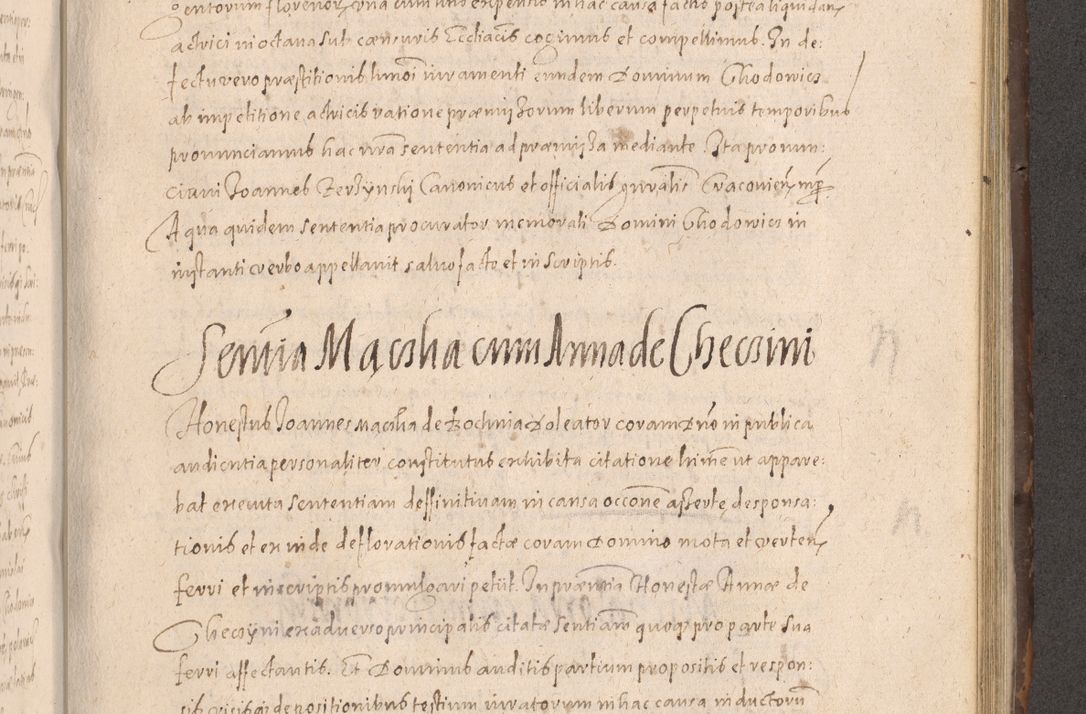 entorum florenorum una cum uno expensio in hac causa facto postea liquidan
actrici in octava sub censuris Ecclîacis cogimus et compellimus. In de:
fectu vero præstitionis hmôi iuramenti eundem Dominum Chodowicz
ab impetitione actricis ratione præmissorum liberum perpetuis temporibus
pronunciamus hac nrâ sententia ad præmissa mediante. Ita pronun:
ciavi Joannes Zerzÿnski Canonicus et officialis gnrâlis Cracovien mpp
A qua quidem sententia procurator memorati Domini Chodowicz in
instanti verbo appellavit salvo facto et in scriptis.
Sentîa Mączka cum Anna de Checzini
Honestus Joannes Mączka de Bochnia Doleator coram Dnô in publica
audientia personaliter constitutus exhibita citatione hinc ut appare:
bat executa sententiam deffinitivam in causa occône assertę desponsa:
tionis et ex inde deflorationis factæ coram Domino mota et verten
ferri et in scriptis promulgari petiit. In præsentia Honestæ Annæ de
Checzyni ex adverso principalis citatæ sentîam quoqz pro parte sua
ferri affectantis. Et Dominus auditis partium propositis et respon:
sis visisqz depositionibus testium iuratorum in hac causa inductorû